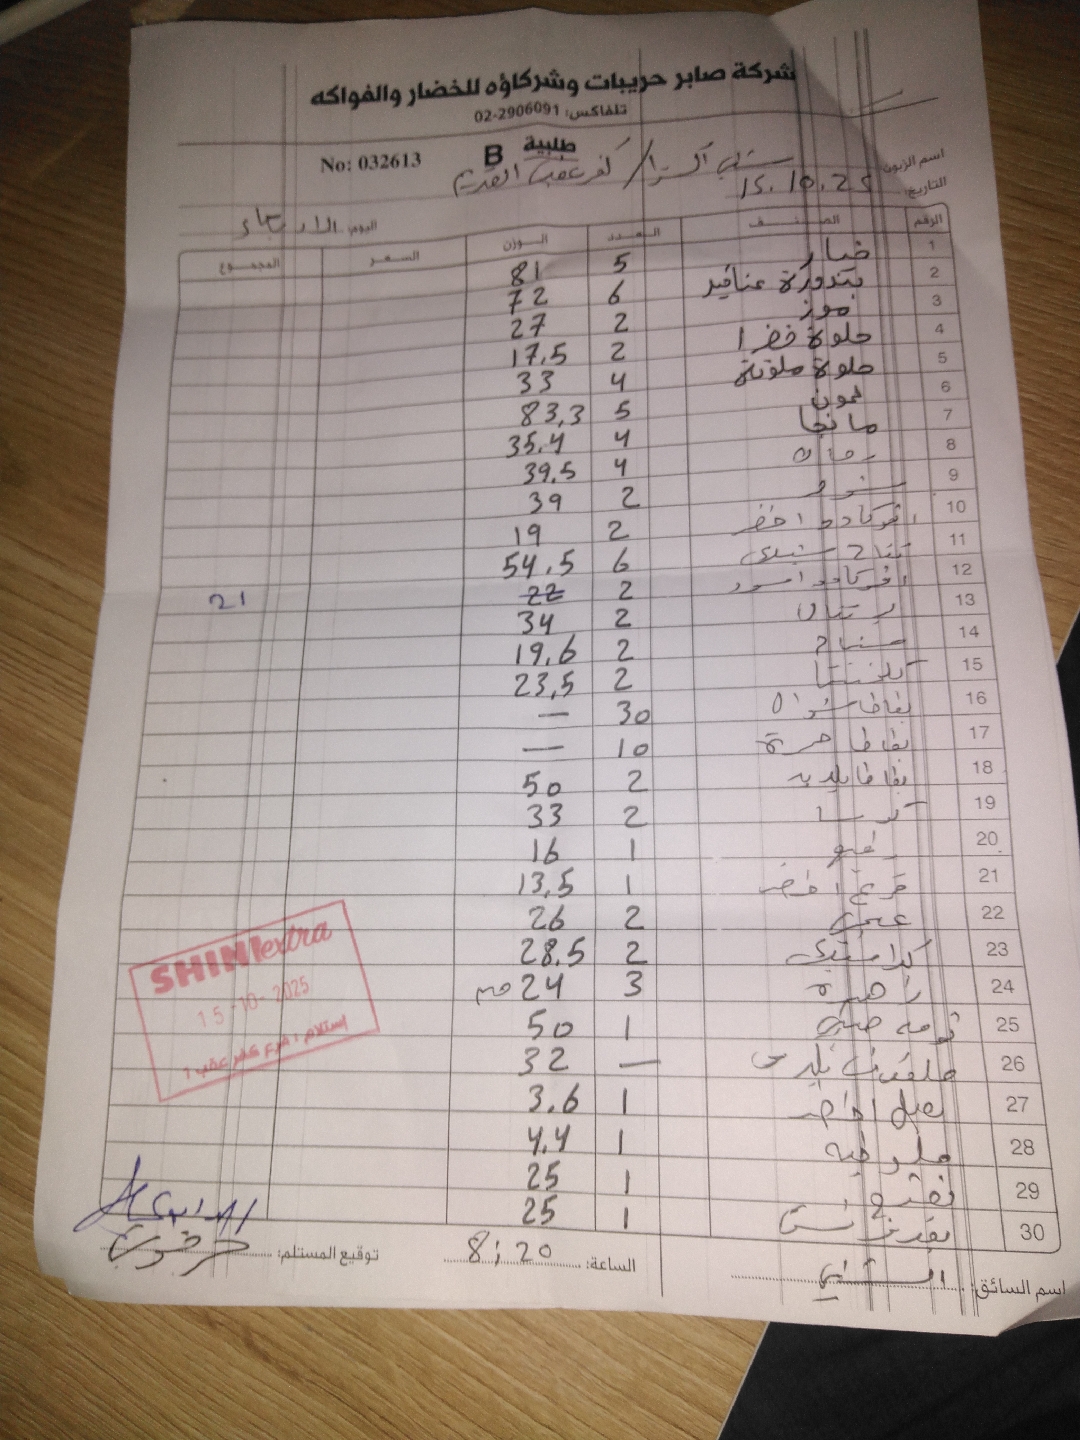 شركة صابر حريبات وشركاؤه للخضار والفواكه
تلفاكس: 02-2906091
طلبية B No: 032613
اسم الزبون: كفر عقب القديم
التاريخ: 15.10.25
اليوم: الاربعاء
الرقم الصنف العدد الوزن السعر المجموع
1 خيار 5 81
2 بندورة عناقيد 6 72
3 موز 2 27
4 حلوة خضرا 2 17.5
5 حلوة ملونة 4 33
6 ليمون 5 83,3
7 مانجا 4 35.4
8 رمان 4 39.5
9 2 39
10 افوكادو اخضر 2 19
11 تفاح 6 54.5
12 افوكادو اسود 2 22 21
13 2 34
14 2 19.6
15 كلمنتينا 2 23,5
16 بطاطا 30 —
17 بطاطا 10 —
18 بطاطا 2 50
19 2 33
20 1 16
21 قرع اخضر 1 13,5
22 عنب 2 26
23 2 28.5
24 زهرة 3 24
25 1 50
26 — 32
27 بصل اخضر 1 3.6
28 ملوخيه 1 4.4
29 1 25
30 1 25
اسم السائق:
الساعة: 8:20
توقيع المستلم:
SHINI extra
15-10-2025
استلام / فرع كفر عقب 1